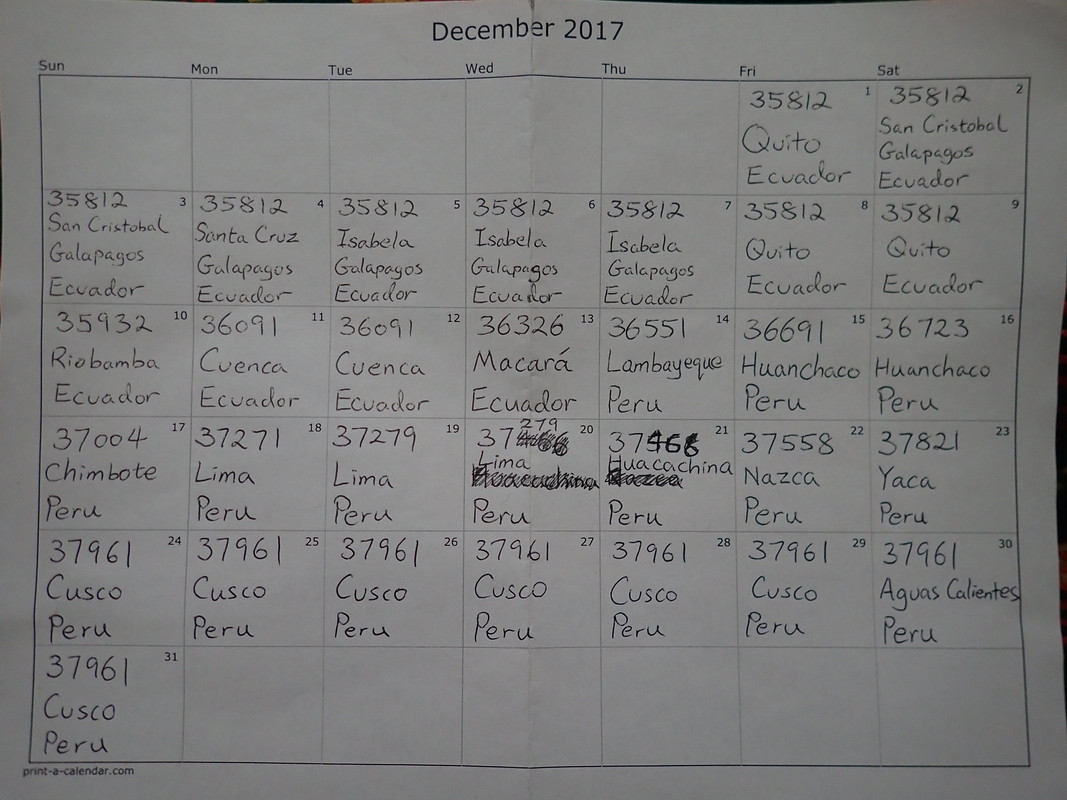 December 2017
Sun
Mon
Tue
Wed
Thu
Fri
Sat
1
35812
Quito
Ecuador
2
35812
San Cristobal
Galapagos
Ecuador
3
35812
San Cristobal
Galapagos
Ecuador
4
35812
Santa Cruz
Galapagos
Ecuador
5
35812
Isabela
Galapagos
Ecuador
6
35812
Isabela
Galapagos
Ecuador
7
35812
Isabela
Galapagos
Ecuador
8
35812
Quito
Ecuador
9
35812
Quito
Ecuador
10
35932
Riobamba
Ecuador
11
36091
Cuenca
Ecuador
12
36091
Cuenca
Ecuador
13
36326
Macará
Ecuador
14
36551
Lambayeque
Peru
15
36691
Huanchaco
Peru
16
36723
Huanchaco
Peru
17
37004
Chimbote
Peru
18
37271
Lima
Peru
19
37279
Lima
Peru
20
37279
Lima
Peru
21
Huacachina
Peru
22
37558
Nazca
Peru
23
37821
Yaca
Peru
24
37961
Cusco
Peru
25
37961
Cusco
Peru
26
37961
Cusco
Peru
27
37961
Cusco
Peru
28
37961
Cusco
Peru
29
37961
Cusco
Peru
30
37961
Aguas Calientes
Peru
31
37961
Cusco
Peru
print-a-calendar.com